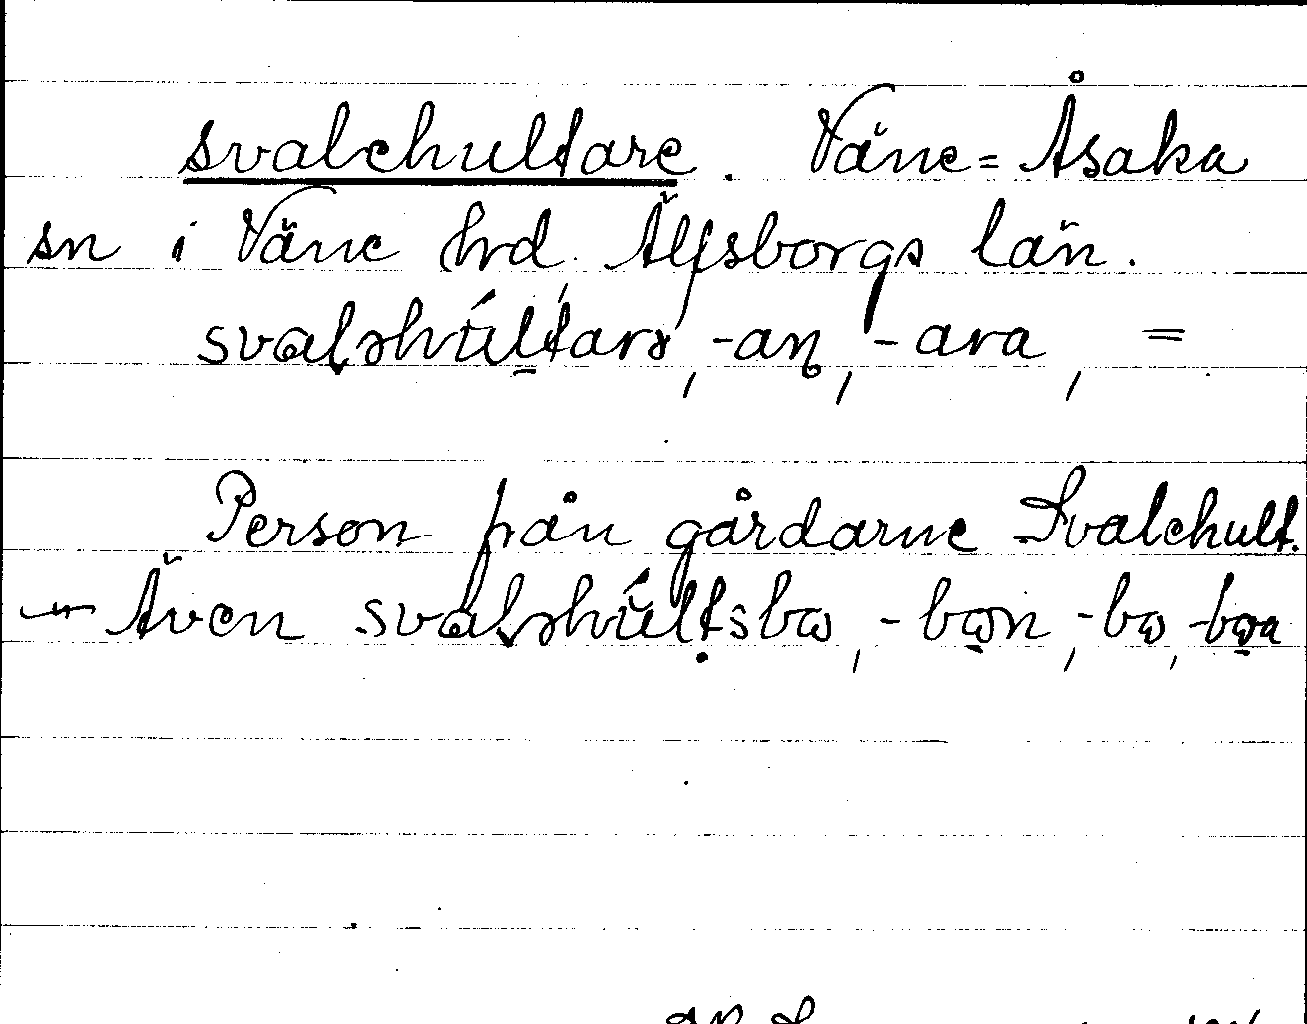 svalehultare. Väne=Åsaka
sn i Väne hrd, Älfsborgs län.
svaləhúltarə, -aɳ, -ara, =
Person från gårdarne Svalehult.
– Även svaləhúltsbɷ, -bɷn, -bɷ, -bɷa